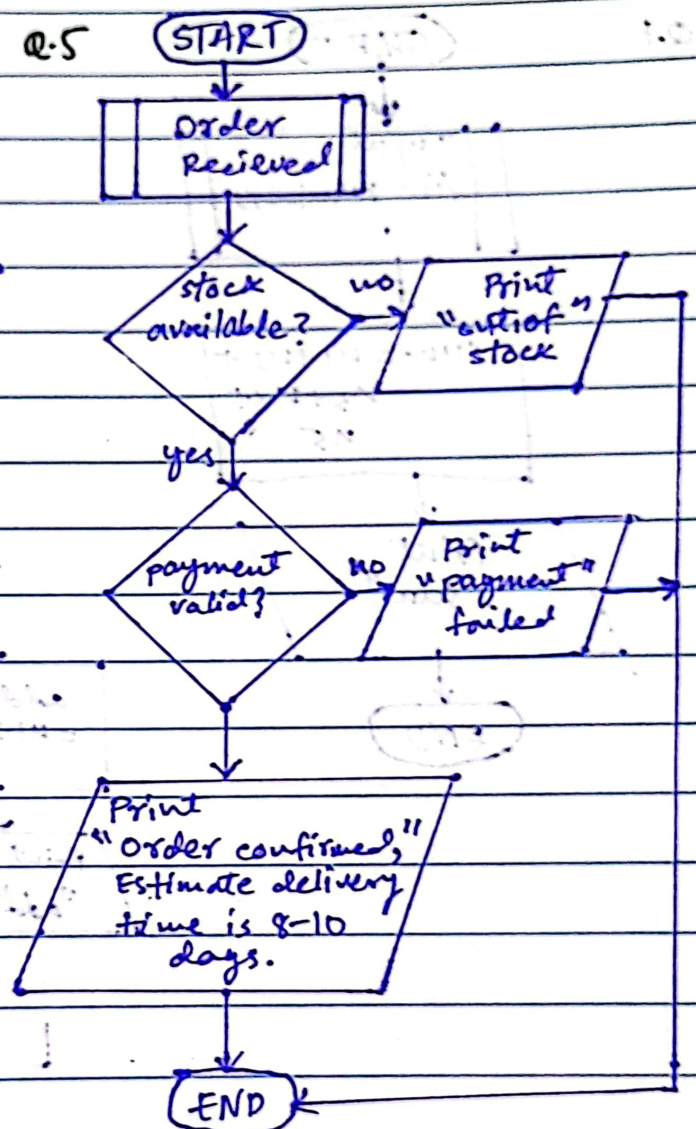 Q.5
START
Order
Recieved
stock
available?
no
Print
"out of"
stock
yes
payment
valid?
no
Print
"payment"
failed
Print
"Order confirmed,"
Estimate delivery
time is 8-10
days.
END